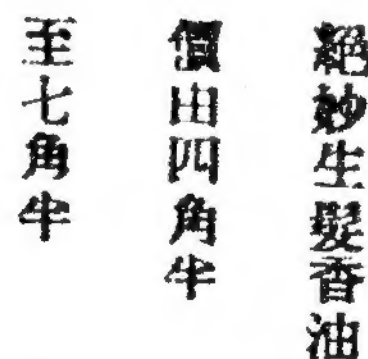 絕妙生髮香油
價由四角半
至七角半